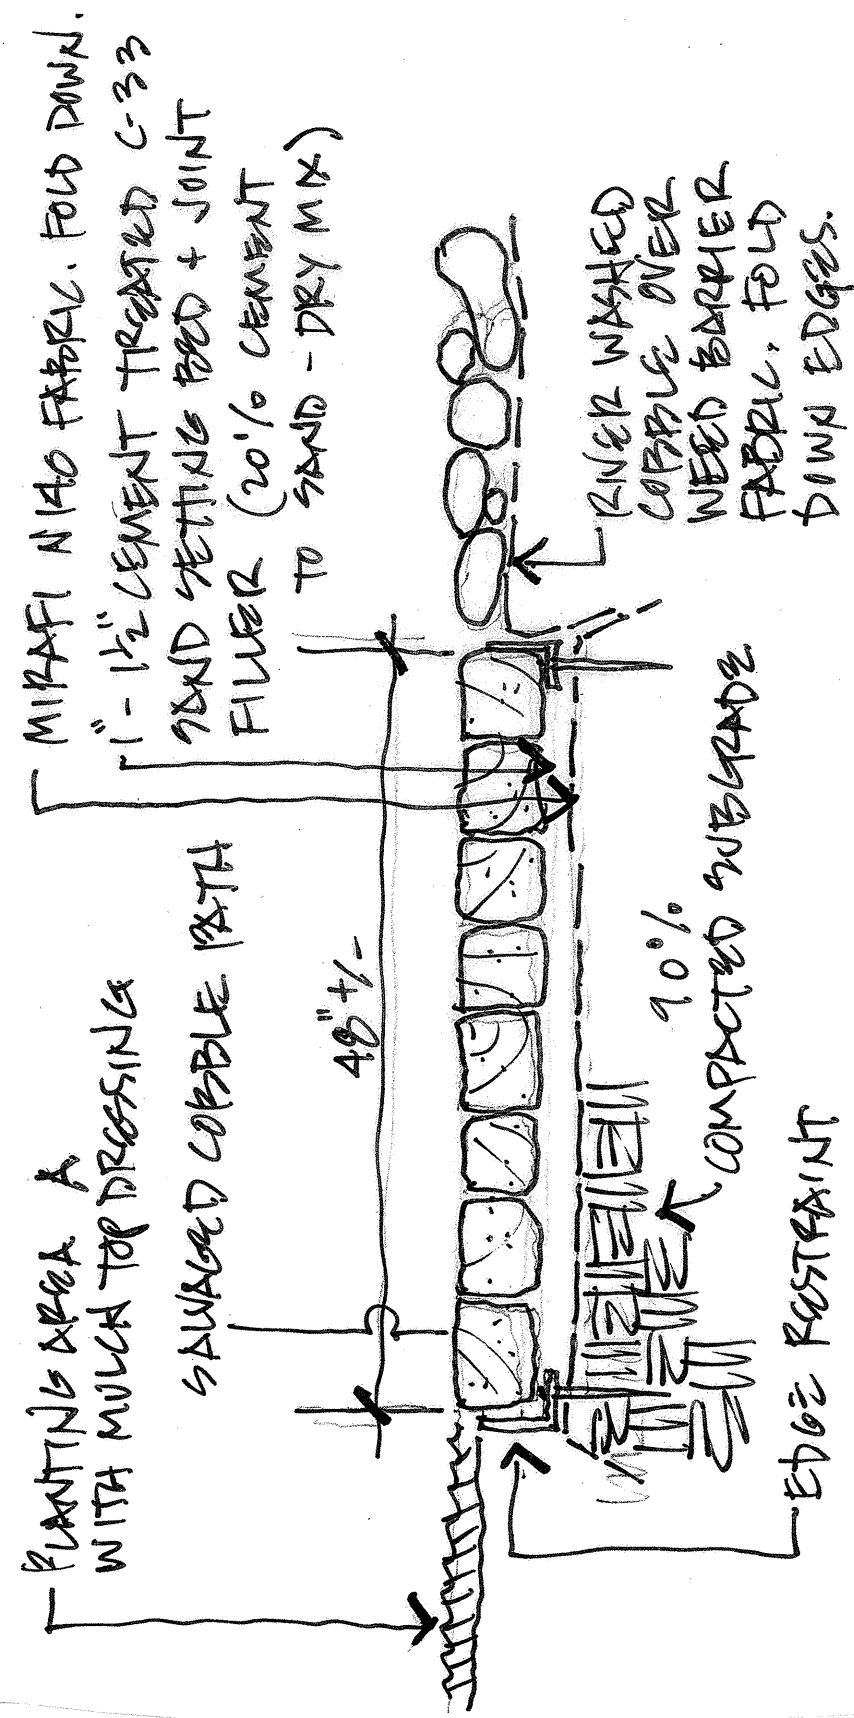 PLANTING AREA A
WITH MULCH TOP DRESSING
SALVAGED COBBLE PATH
48" +/-
MIRAFI N140 FABRIC. FOLD DOWN.
1" - 1½" CEMENT TREATED C-33
SAND SETTING BED + JOINT
FILLER (20% CEMENT
TO SAND - DRY MIX)
RIVER WASHED
COBBLE OVER
WEED BARRIER
FABRIC. FOLD
DOWN EDGES.
90%
COMPACTED SUBGRADE
EDGE RESTRAINT